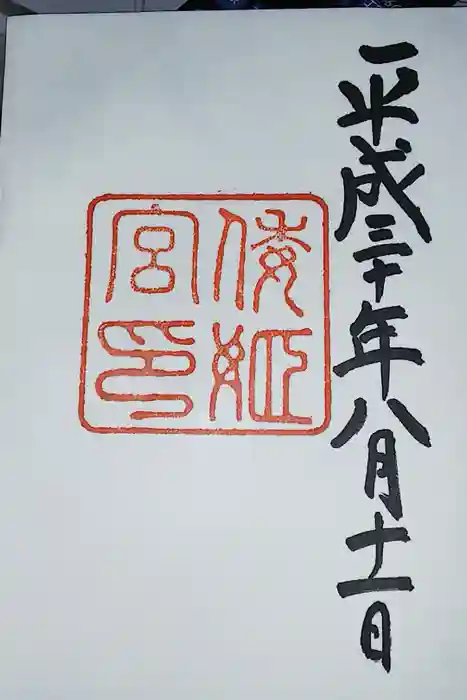 平成三十年八月十一日
倭姫
宮印